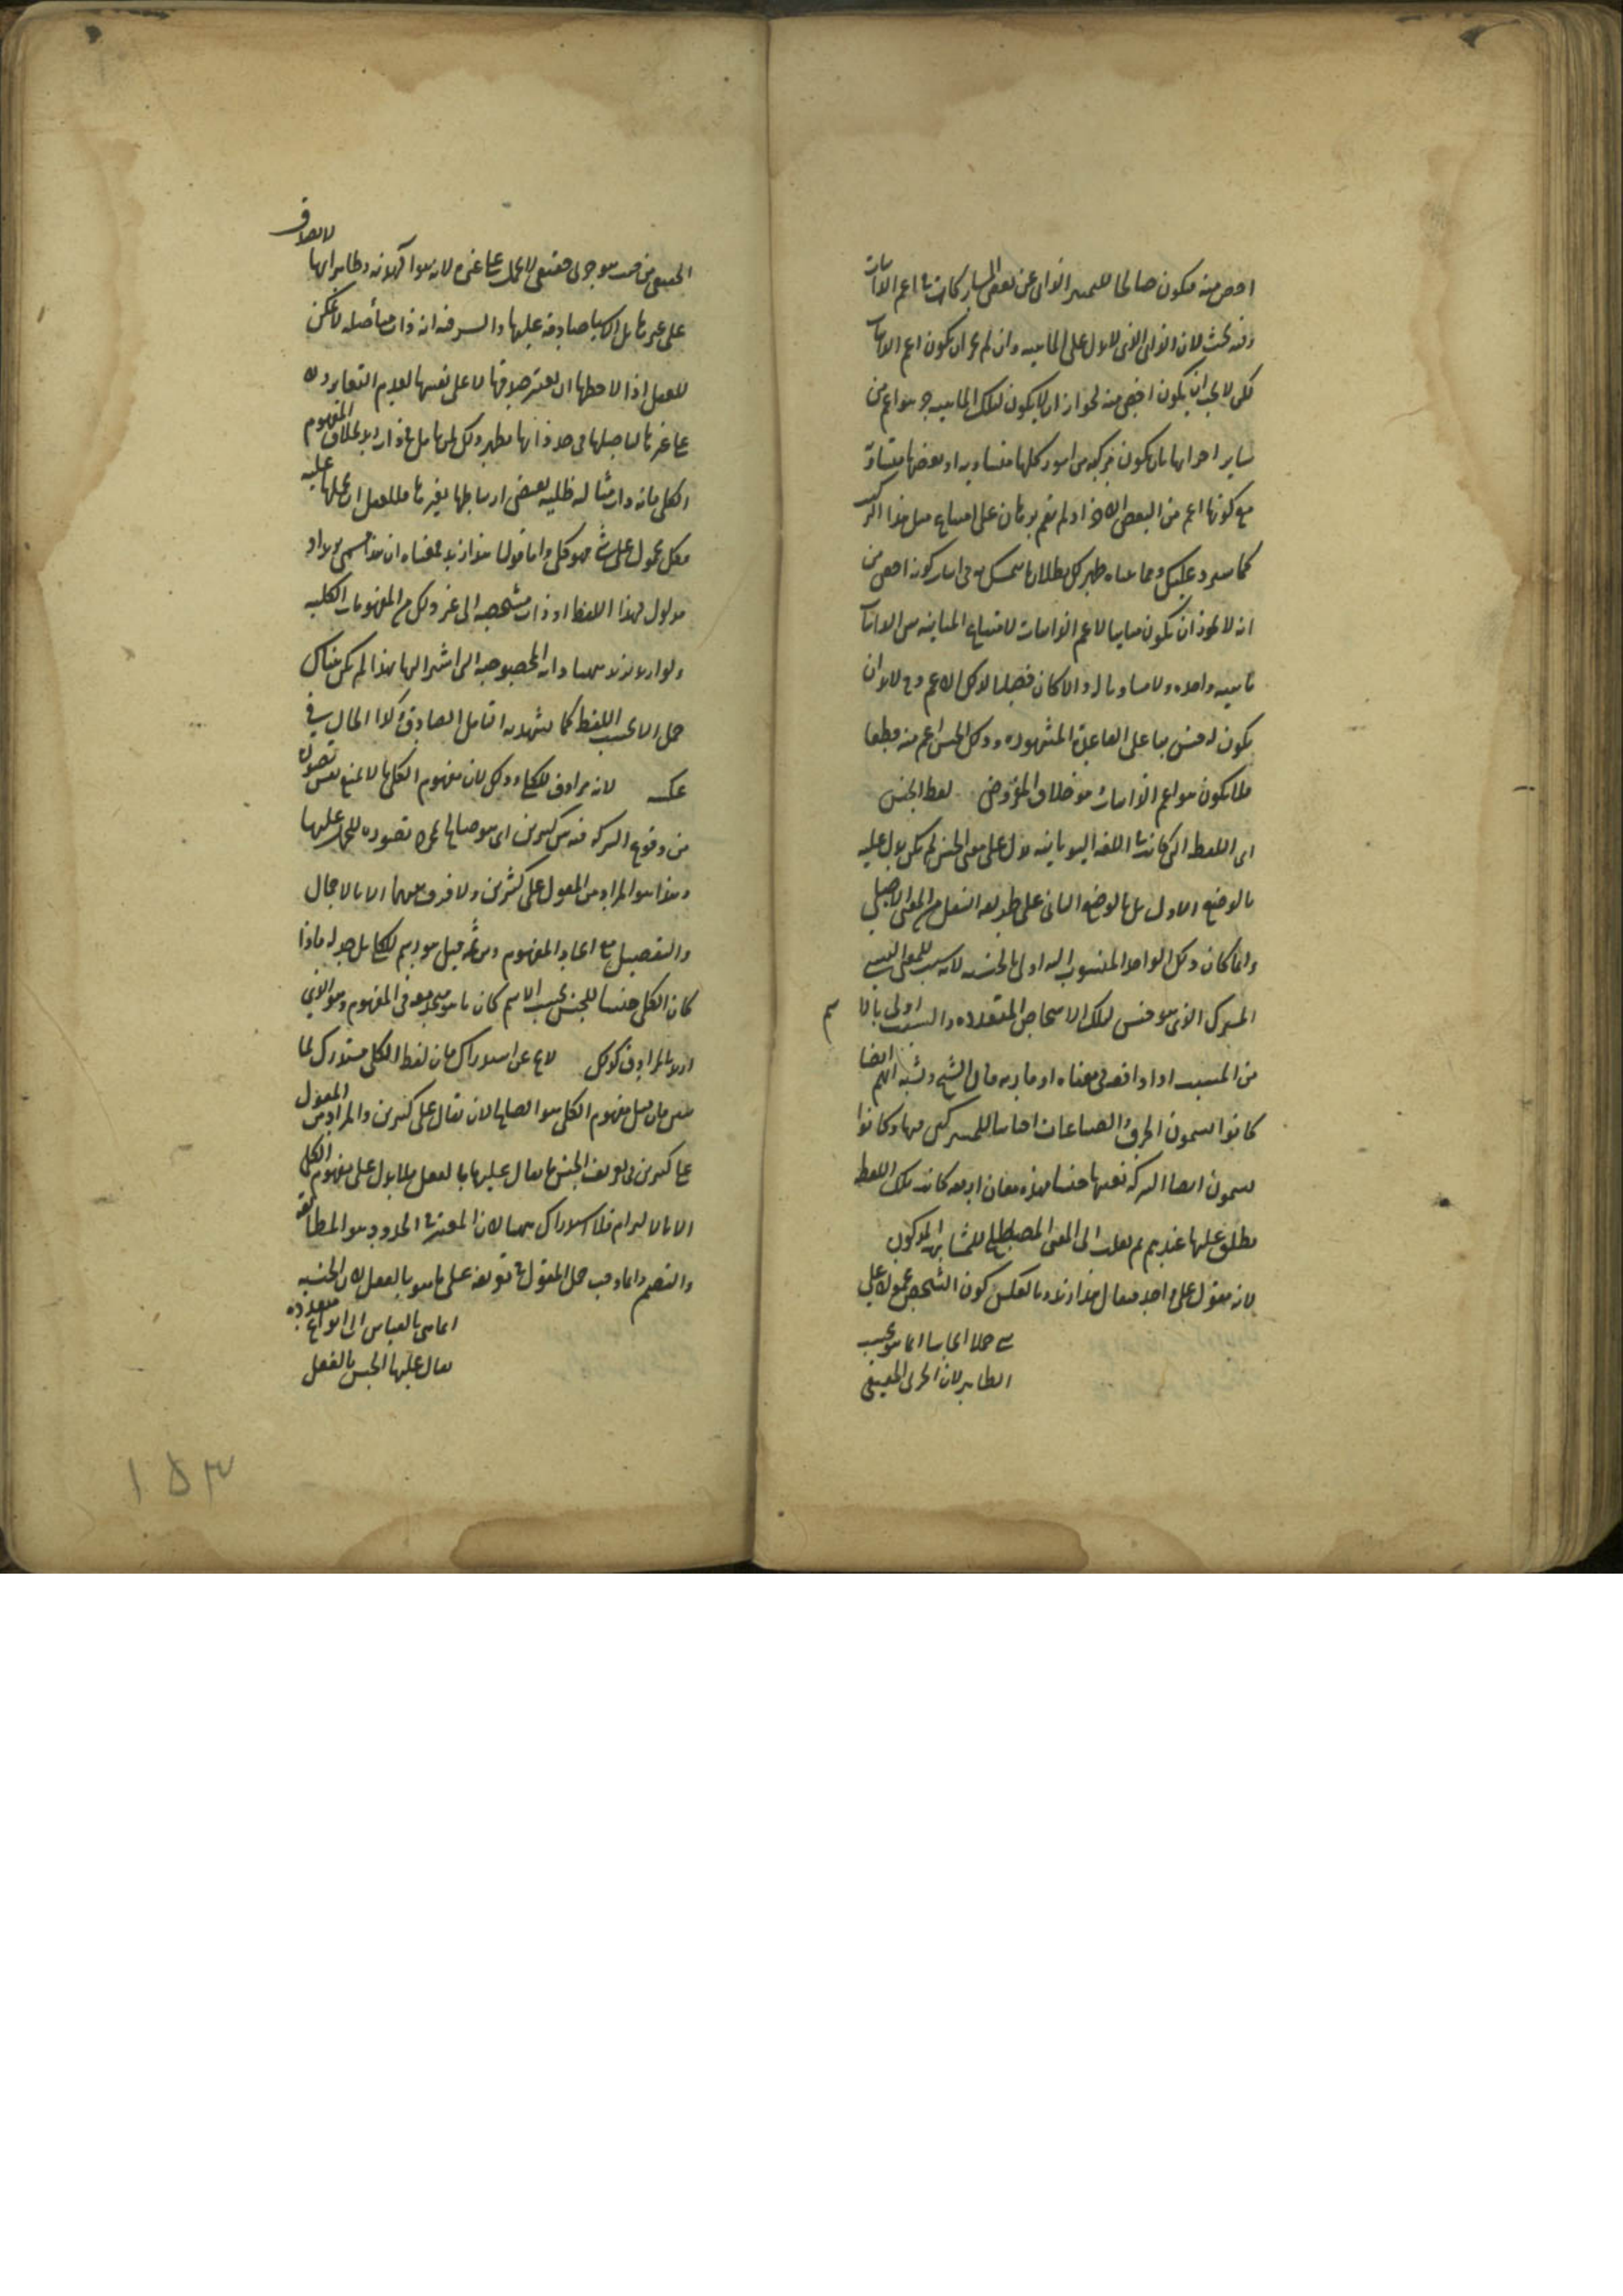 اخص منه فيكون صالحا للتميز الذاتى عن بعض المشاركات فى اعم الذاتيات
وفيه بحث لان الذاتى الذى لا يدل على الماهيه وان لم يجز ان يكون اعم الذاتيات
لكن لا يجب ان يكون اخص منه لجواز ان لا يكون لتلك الماهيه جزء هو اعم من
ساير اجزائها بان يكون مركبه من امور كلها متساويه او بعضها متساويه
مع كونها اعم من البعض الاخر اذ لم يقم برهان على امتناع مثل هذا التركيب
كما سيرد عليك وبما بيناه ظهر لك بطلان ما يتمسك به فى اثبات كونه اخص من
انه لا يجوز ان يكون مباينا لاعم الذاتيات لامتناع المباينه بين الذاتيات
ماهيه واحده ولا مساويا له والا كان فصلا لذلك الاعم وح لابد ان
يكون له جنس بناء على القاعدة المشهوره وذلك الجنس اعم منه قطعا
فلا يكون هو اعم الذاتيات هو خلاف المفروض لفظ الجنس
اى اللفظه التى كانت فى اللغه اليونانيه تدل على معنى الجنس لم يكن يدل عليه
بالوضع الاول بل بالوضع الثانى على طريقه النقل من المعنى الاصلى
وانما كان ذلك الواحد المنسوب اليه اولى بالجنسيه لانه سبب للمعنى النسبى
المشترك الذى هو جنس لتلك الاشخاص المتعدده والسبب اولى بالاسم
من المسبب اذا وافقه فى معناه او قاربه قال الشيخ ويشبه انهم ايضا
كانوا يسمون الحرف والصناعات اجناسا للمشتركين فيها وكانوا
يسمون ايضا الشركه نفسها جنسا فهذه معان اربعه كانت تلك اللفظه
يطلق عليها عندهم ثم نقلت الى المعنى المصطلح للمشابهه المذكوره
لانه مقول على واحد فيقال هذا زيد وبالعكس كون الشخص محمولا على
شى حملا ايجابيا انما هو بحسب
الظاهر لان الجزئى الحقيقى
الحقيقى من حيث هو جزئى حقيقى لا يحمل على غيره لانه هو الهذيه وظاهر انها لا تصدق
على غيرها بل الاشياء صادقه عليها والسر فيه انه ذات متأصله لا يمكن
للعقل اذا لاحظها ان يعتبر صدقها لا على نفسها لعدم التغاير ولا
على غيرها لتاصلها فى حد ذاتها بخلاف المفهوم
الكلى فانه ذات مثاليه ظليه يقتضى ارتباطها بغيرها فللعقل ان يحملها عليه
فكل محمول على شى فهو كلى واما قولنا هذا زيد فمعناه ان هذا مسمى بزيد او
مدلول لهذا اللفظ او ذات مشخصه الى غير ذلك من المفهومات الكليه
ولو اريد بزيد هنا ذاته المخصوصه التى اشير اليها بهذا لم يكن هناك
حمل الا بحسب اللفظ كما يشهد به التامل الصادق وكذا الحال فى
عكسه لانه مرادف للكلى وذلك لان مفهوم الكلى ما لا يمنع نفس تصوره
من وقوع الشركه فيه بين كثيرين اى هو صالح بمجرد تصوره للحمل عليها
وهذا هو المراد من المقول على كثيرين ولا فرق بينهما الا بالاجمال
والتفصيل مع اتحاد المفهوم ومن ثمه قيل هو رسم للكلى بل حد له فاذا
كان الكلى جنسا للجنس بحسب الاسم كان ما هو متحد معه فى المفهوم وهو الذى
اريد بالمرادف كذلك لا يخ عن استدراك فان لفظ الكلى مستدرك لما
بين فان قيل مفهوم الكلى هو الصالح لان يقال على كثيرين والمراد من المقول
على كثيرين فى تعريف الجنس ما يقال عليها بالفعل فلا يدل على مفهوم الكلى
الا بالالتزام فلا استدراك ههنا لان المعتبر فى الحدود هو المطابقه
والتضمن وانما وجب حمل المقول فى تعريفه على ما هو بالفعل لان الجنسيه
انما هى بالقياس الى انواع متعدده
يقال عليها الجنس بالفعل
١٥٣